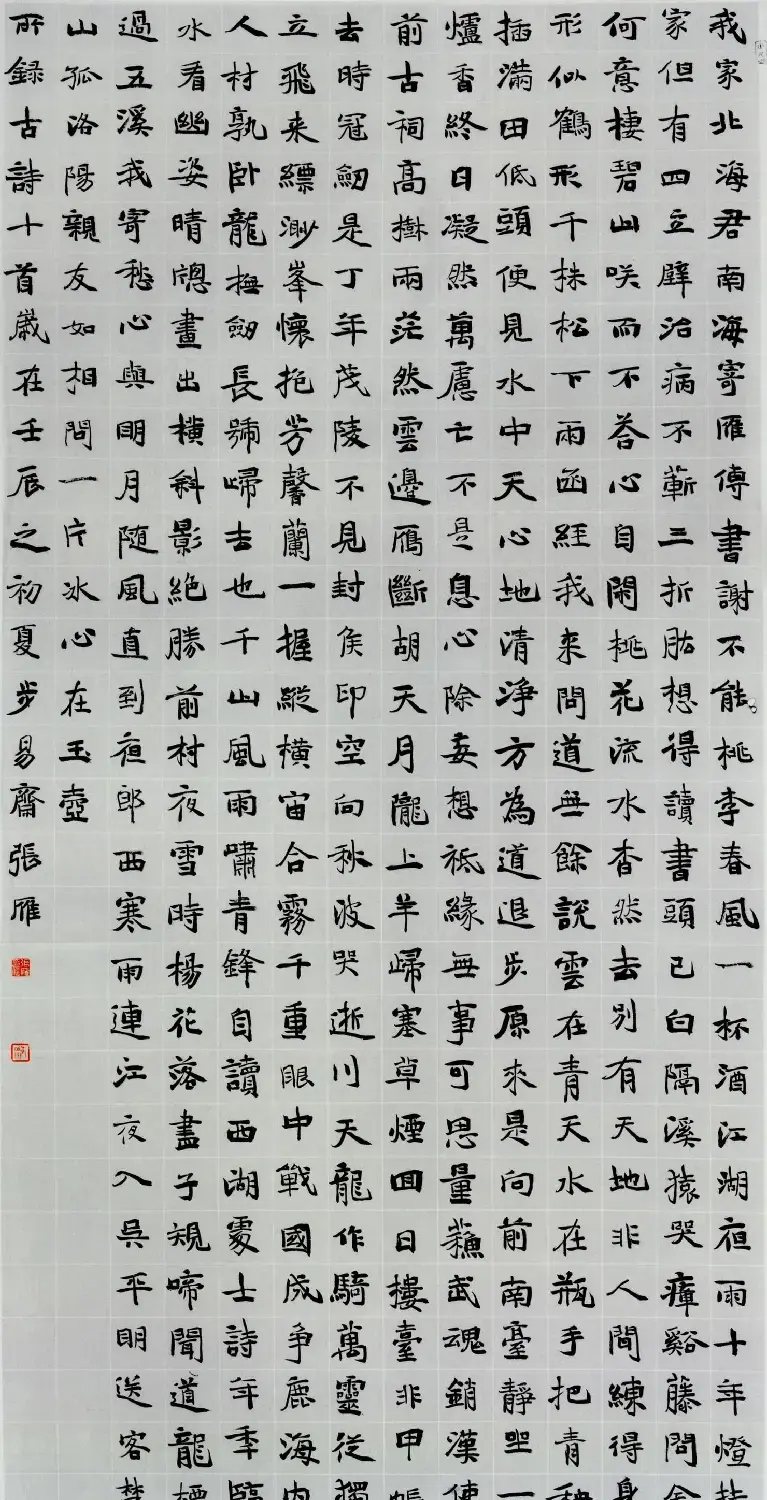 我家北海君南海寄雁傳書謝不能桃李春風一杯酒江湖夜雨十年燈持
家但有四立壁治病不蘄三折肱想得讀書頭已白隔溪猿哭瘴谿藤問余
何意棲碧山咲而不荅心自閑桃花流水杳然去別有天地非人間練得身
形似鶴形千株松下兩函経我来問道無餘說雲在青天水在瓶手把青秧
插滿田低頭便見水中天心地清淨方為道退步原來是向前南臺靜坐一
爐香終日凝然萬慮亡不是息心除妄想祗緣無事可思量蘇武魂銷漢使
前古祠高樹兩茫然雲邊雁斷胡天月隴上羊歸塞草煙囬日樓臺非甲帳
去時冠劒是丁年茂陵不見封侯印空向秋波哭逝川天龍作騎萬靈従獨
立飛来縹渺峯懷抱芳馨蘭一握縱橫宙合霧千重眼中戰國成争鹿海内
人材孰卧龍撫劒長號歸去也千山風雨嘯青鋒自讀西湖處士詩年年臨
水看幽姿晴牕畫出橫斜影絕勝前村夜雪時楊花落盡子規啼聞道龍標
過五溪我寄愁心與明月随風直到夜郎西寒雨連江夜入吳平明送客楚
山孤洛陽親友如相問一片冰心在玉壺
所録古詩十首歲在壬辰之初夏步易齋張雁